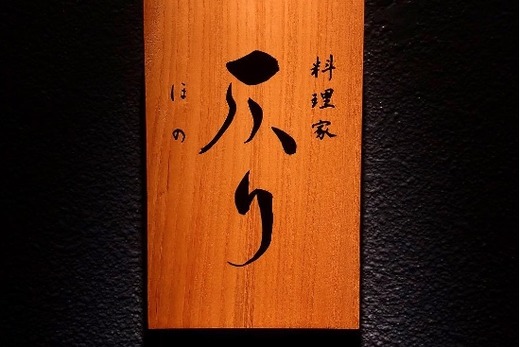 料理家
仄り
ほの